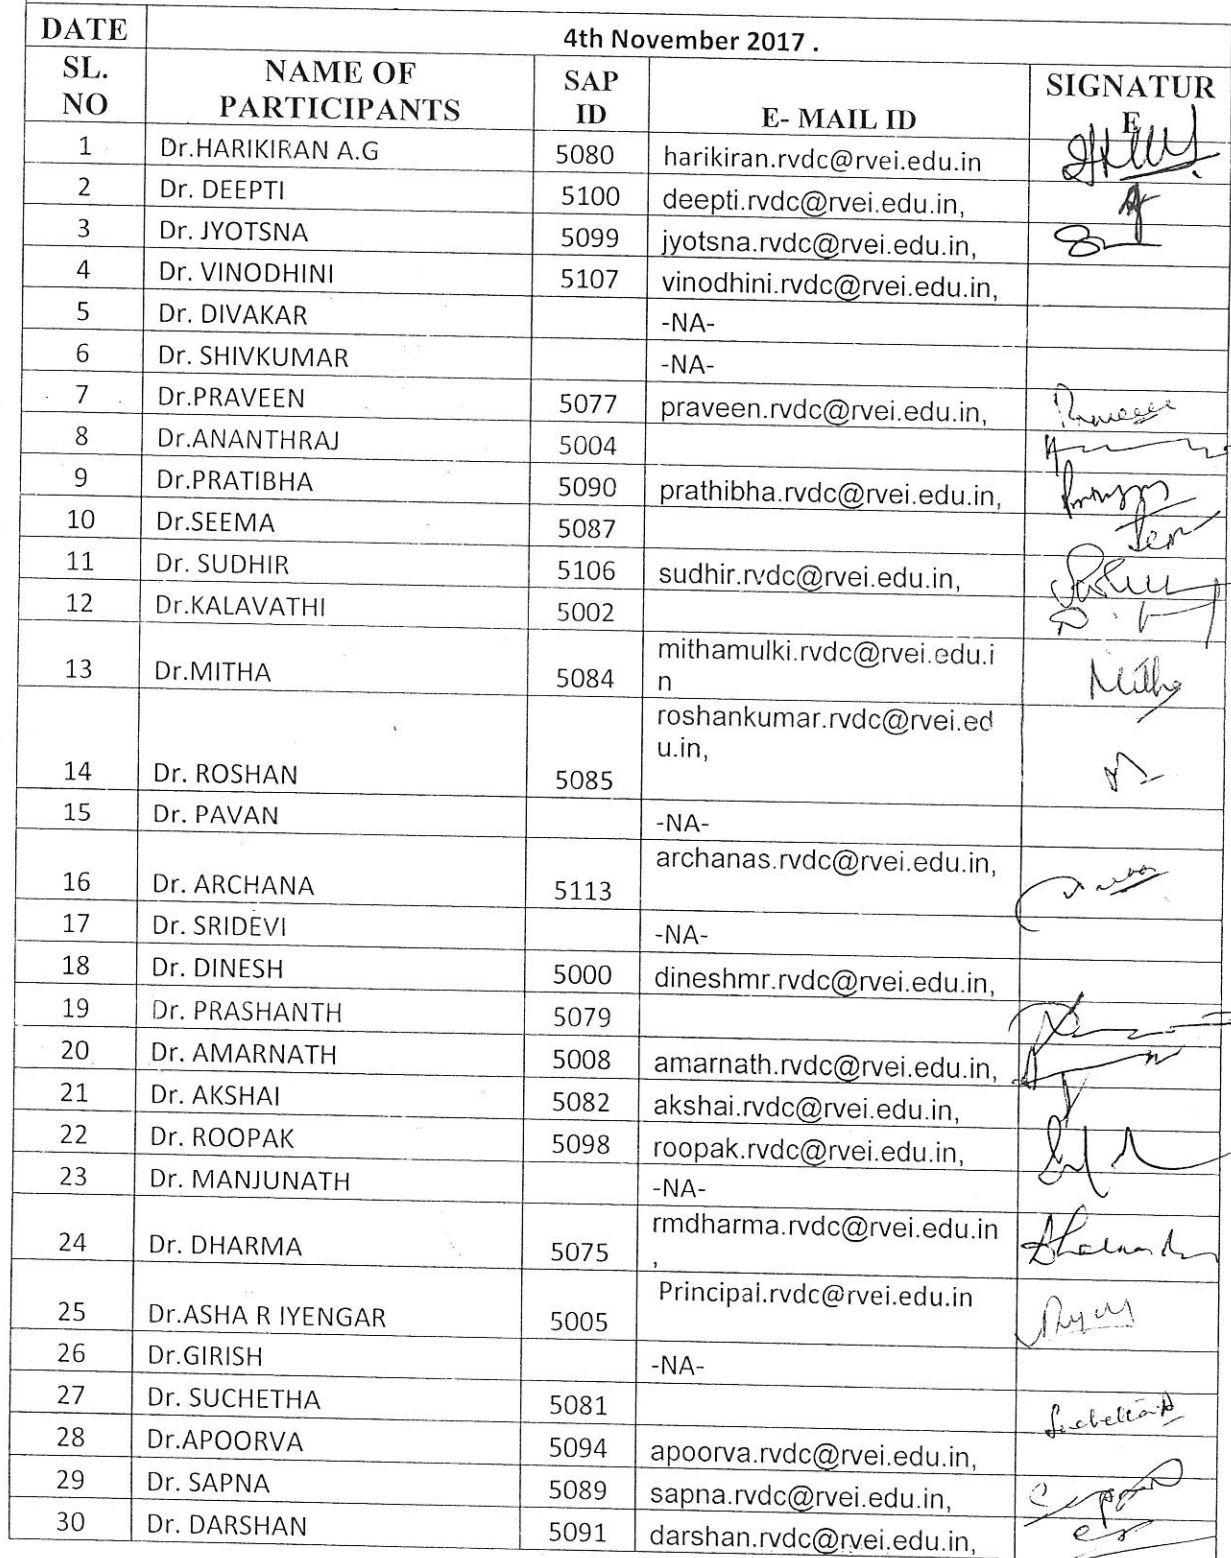 DATE 4th November 2017 .
SL. NO NAME OF PARTICIPANTS SAP ID E- MAIL ID SIGNATUR E
1 Dr.HARIKIRAN A.G 5080 harikiran.rvdc@rvei.edu.in
2 Dr. DEEPTI 5100 deepti.rvdc@rvei.edu.in,
3 Dr. JYOTSNA 5099 jyotsna.rvdc@rvei.edu.in,
4 Dr. VINODHINI 5107 vinodhini.rvdc@rvei.edu.in,
5 Dr. DIVAKAR -NA-
6 Dr. SHIVKUMAR -NA-
7 Dr.PRAVEEN 5077 praveen.rvdc@rvei.edu.in, Praveen
8 Dr.ANANTHRAJ 5004
9 Dr.PRATIBHA 5090 prathibha.rvdc@rvei.edu.in,
10 Dr.SEEMA 5087
11 Dr. SUDHIR 5106 sudhir.rvdc@rvei.edu.in,
12 Dr.KALAVATHI 5002
13 Dr.MITHA 5084 mithamulki.rvdc@rvei.edu.i
n Mitha
roshankumar.rvdc@rvei.ed
u.in,
14 Dr. ROSHAN 5085
15 Dr. PAVAN -NA-
archanas.rvdc@rvei.edu.in,
16 Dr. ARCHANA 5113
17 Dr. SRIDEVI -NA-
18 Dr. DINESH 5000 dineshmr.rvdc@rvei.edu.in,
19 Dr. PRASHANTH 5079
20 Dr. AMARNATH 5008 amarnath.rvdc@rvei.edu.in,
21 Dr. AKSHAI 5082 akshai.rvdc@rvei.edu.in,
22 Dr. ROOPAK 5098 roopak.rvdc@rvei.edu.in,
23 Dr. MANJUNATH -NA-
24 Dr. DHARMA 5075 rmdharma.rvdc@rvei.edu.in
,
Principal.rvdc@rvei.edu.in
25 Dr.ASHA R IYENGAR 5005
26 Dr.GIRISH -NA-
27 Dr. SUCHETHA 5081
28 Dr.APOORVA 5094 apoorva.rvdc@rvei.edu.in,
29 Dr. SAPNA 5089 sapna.rvdc@rvei.edu.in,
30 Dr. DARSHAN 5091 darshan.rvdc@rvei.edu.in,